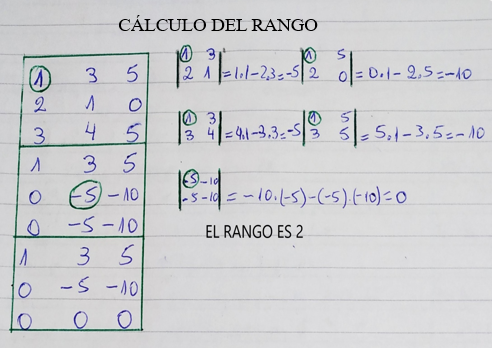 CÁLCULO DEL RANGO
1 3 5
2 1 0
3 4 5
1 3 5
0 -5 -10
0 -5 -10
1 3 5
0 -5 -10
0 0 0
|1 3|
|2 1| = 1.1-2.3=-5
|1 5|
|2 0| = 0.1-2.5=-10
|1 3|
|3 4| = 4.1-3.3=-5
|1 5|
|3 5| = 5.1-3.5=-10
|-5 -10|
|-5 -10| = -10.(-5)-(-5).(-10)=0
EL RANGO ES 2